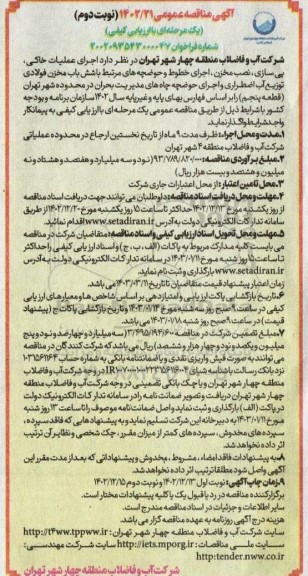 آگهی مناقصه عمومی ۱۴۰۲/۲۱ (نوبت دوم)
(یک مرحله‌ای با ارزیابی کیفی)
شماره فراخوان ۲۰۰۲۰۹۳۵۴۳۰۰۰۰۴۷
شرکت آب و فاضلاب منطقه چهار شهر تهران در نظر دارد اجرای عملیات خاکی،
بی سازی، نصب مخزن، اجرای خطوط و حوضچه های مرتبط باشش باب مخزن فولادی
توزیع آب اضطراری و اجرای حوضچه چاه های مدیریت بحران در محدوده شهر تهران
(قطعه پنجم) را بر اساس فهارس بهای پایه و غیرپایه سال ۱۴۰۲ سازمان برنامه و بودجه
کشور با شرایط ذیل از طریق مناقصه عمومی یک مرحله ای با ارزیابی کیفی به پیمانکار
واجد شرایط واگذار نماید.
۱. مدت و محل اجرا: ظرف مدت ۹ ماه از تاریخ نخستین ارجاع در محدوده عملیاتی
شرکت آب و فاضلاب منطقه ۴ شهر تهران
۲. مبلغ برآوردی مناقصه: ۹۳/۷۸۹/۸۲۰/۰۰۰ (نود و سه میلیارد و هفتصد و هشتاد و نه
میلیون و هشتصد و بیست هزار ریال)
۳. محل تامین اعتبار: از محل اعتبارات جاری شرکت
۴. مهلت و محل دریافت اسناد مناقصه: داوطلبان می توانند جهت دریافت اسناد مناقصه
از روز یکشنبه مورخ ۱۴۰۲/۱۲/۱۳ حداکثر تا ساعت ۱۵ روز یکشنبه مورخ ۱۴۰۲/۱۲/۲۰ از طریق
سامانه تدارکات الکترونیکی دولت به آدرس www.setadiran.ir اقدام نمایند.
۵. مهلت و محل تحویل اسناد ارزیابی کیفی و اسناد مناقصه: متقاضیان شرکت در مناقصه
می بایست کلیه مدارک مربوط به پاکات (الف، ب، ج) و اسناد ارزیابی کیفی را حداکثر
تا ساعت ۱۵ روز شنبه مورخ ۱۴۰۳/۰۱/۱۱ در سامانه تدارکات الکترونیکی دولت به آدرس
www.setadiran.ir بارگذاری و ثبت نام نماید.
زمان اعتبار پیشنهاد قیمت متقاضیان تا تاریخ ۱۴۰۳/۰۳/۱۱ می باشد.
۶. تاریخ بازگشایی پاکت ارزیابی و امتیازدهی بر اساس شاخص ها و معیارهای ارزیابی
قیمت) در ساعت ۹ صبح روز شنبه مورخ ۱۴۰۳/۰۱/۱۸ می باشد.
میلیون و یکصد و نود و چهار هزار و ششصد) ریال می باشد که شرکت کنندگان در مناقصه
می توانند به صورت فیش واریزی نقدی و یا ضمانتنامه بانکی به شماره حساب
منطقه چهار شهر تهران و یا چک بانکی تضمینی در وجه شرکت آب و فاضلاب منطقه
چهار شهر تهران دریافت و تصویر ضمانت نامه را در سامانه تدارکات الکترونیک دولت
در پاکت (الف) بارگذاری و ثبت نماید و اصل ضمانت نامه موصوف را تا ساعت ۱۳ روز شنبه
مورخ ۱۴۰۳/۰۱/۱۱ به دبیرخانه این شرکت تسلیم نمایند و به پیشنهاد هایی که فاقد سپرده،
سپرده های مخدوش، سپرده های کمتر از میزان مقرر، چک شخصی و نظایر آن ترتیب
اثر داده نخواهد شد.
۸. به پیشنهادات فاقد امضاء، مشروط، مخدوش و پیشنهاداتی که بعد از مدت مقرر این
آگهی واصل شود مطلقا ترتیب اثر داده نخواهد شد.
۹. زمان چاپ آگهی: نوبت اول ۱۴۰۲/۱۲/۱۳ نوبت دوم ۱۴۰۲/۱۲/۱۵
برگزار کننده مناقصه در رد یا قبول یک یا کلیه پیشنهادات مختار است.
سایر اطلاعات و جزئیات در اسناد مناقصه مندرج است.
هزینه درج آگهی روزنامه به عهده مناقصه گزار می باشد.
سایت شرکت آب و فاضلاب منطقه چهار شهر تهران: http://t4ww.tppww.ir
سایت ملی مناقصات: http://iets.mporg.ir سایت شرکت مهندسی:
http:tender.nww.co.ir
شرکت آب و فاضلاب منطقه چهار شهر تهران